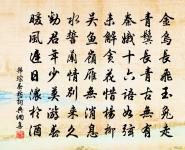 金烏長飛玉兔走
青鬢長青古無有
秦娥十六語如弦
未解貪花惜楊柳
吳魚嶺雁無消息
水誓蘭情別來久
勸君年少莫遊春
暖風遲日濃於酒
韓琮春愁